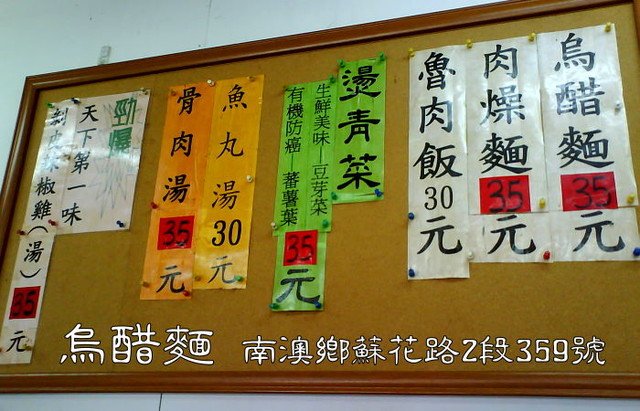 烏醋麵
35
元
肉燥麵
35
元
魯肉飯
30
元
燙青菜
生鮮美味—豆芽菜
有機防癌—蕃薯葉
35
元
魚丸湯
30
元
骨肉湯
35
元
勁爆
天下第一味
剝皮辣椒雞(湯)
35
元
烏醋麵 南澳鄉蘇花路2段359號